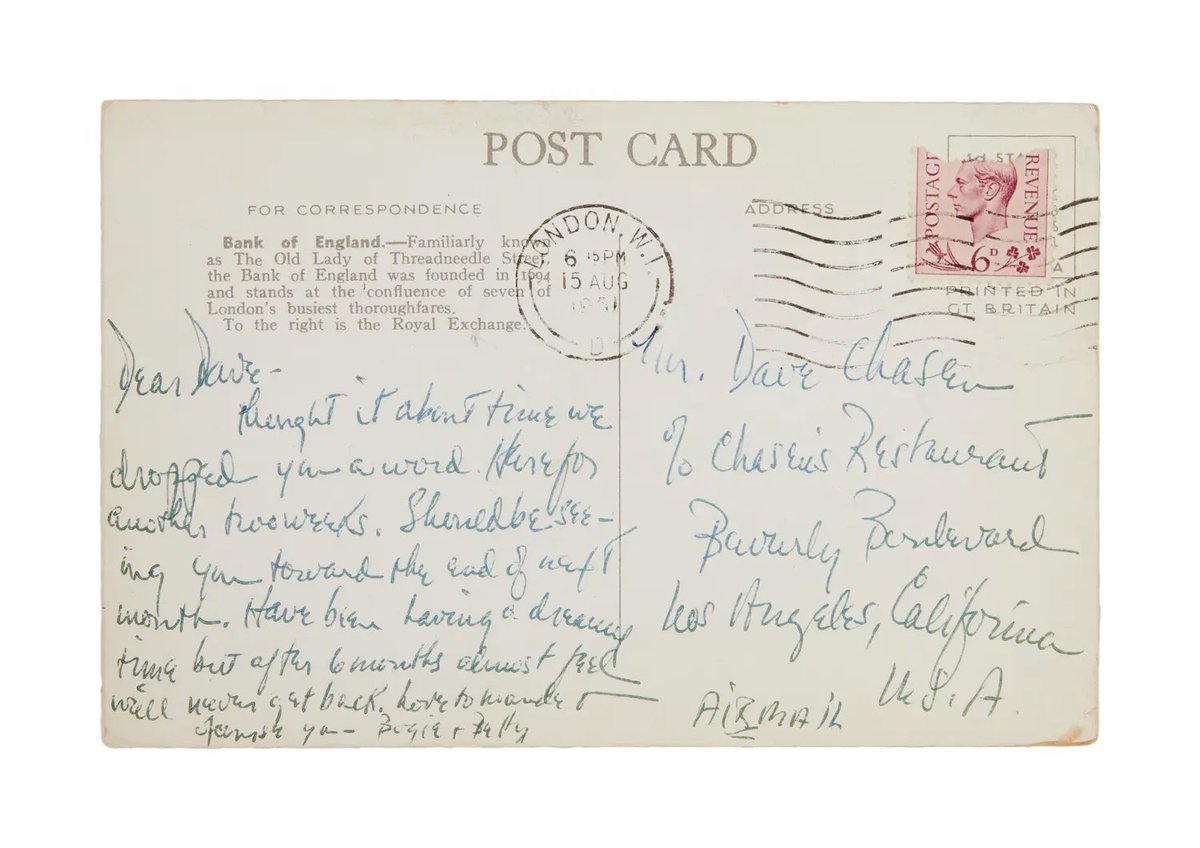 POST CARD
FOR CORRESPONDENCE
ADDRESS
Bank of England.—Familiarly known
as The Old Lady of Threadneedle Street,
the Bank of England was founded in 1694
and stands at the confluence of seven of
London's busiest thoroughfares.
To the right is the Royal Exchange.
LONDON, W.1.
6 15PM
15 AUG
1951
D
POSTAGE
REVENUE
6D
PRINTED IN
GT. BRITAIN
Dear Dave –
thought it about time we
dropped you a word. Here for
another two weeks. Should be see-
ing you toward the end of next
month. Have been having a dreamy
time but after 6 months almost feel
we'll never get back. Love to Maude &
you – Bogie + Betty
Mr. Dave Chasen
c/o Chasen's Restaurant
Beverly Boulevard
Los Angeles, California
U.S.A.
AIRMAIL